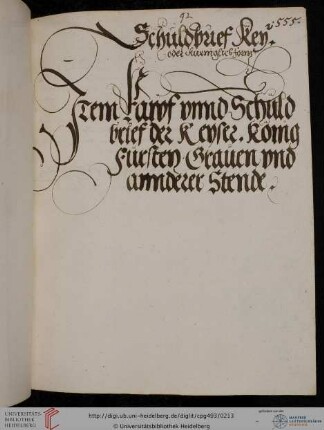 92.
v. 555.
Schuldbrief Key.
Item Kauf vnnd Schuld
brief der Keyser. König
Fursten Grauen vnd
annderer Stende.
UNIVERSITÄTS-
BIBLIOTHEK
HEIDELBERG
http://digi.ub.uni-heidelberg.de/diglit/cpg493/0213
© Universitätsbibliothek Heidelberg